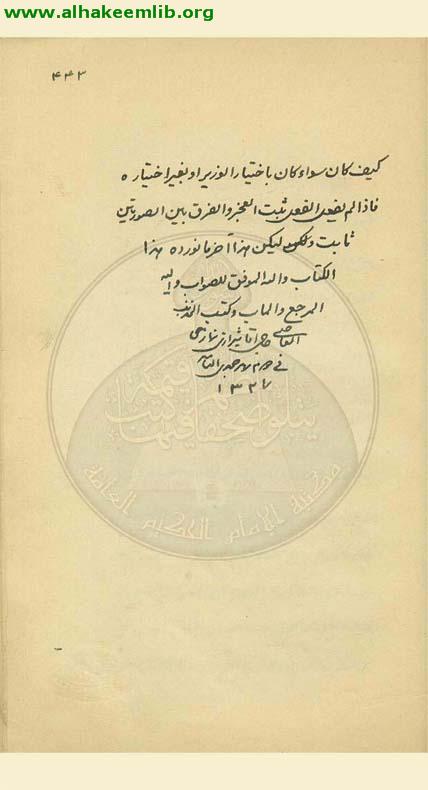 www.alhakeemlib.org
۴۴۳
كيف كان سواء كان باختيار الوزير او بغير اختياره
فاذا لم يفعل ثبت العجز والفرق بين الصورتين
ثابت وليكن هذا آخر ما نورده هذا
الكتاب والله الموفق للصواب واليه
المرجع والماب وكتب المذنب
العاصي حاجي اقا شيرازي
في
۱۳۲۷
مكتبة الإمام الحكيم العامة